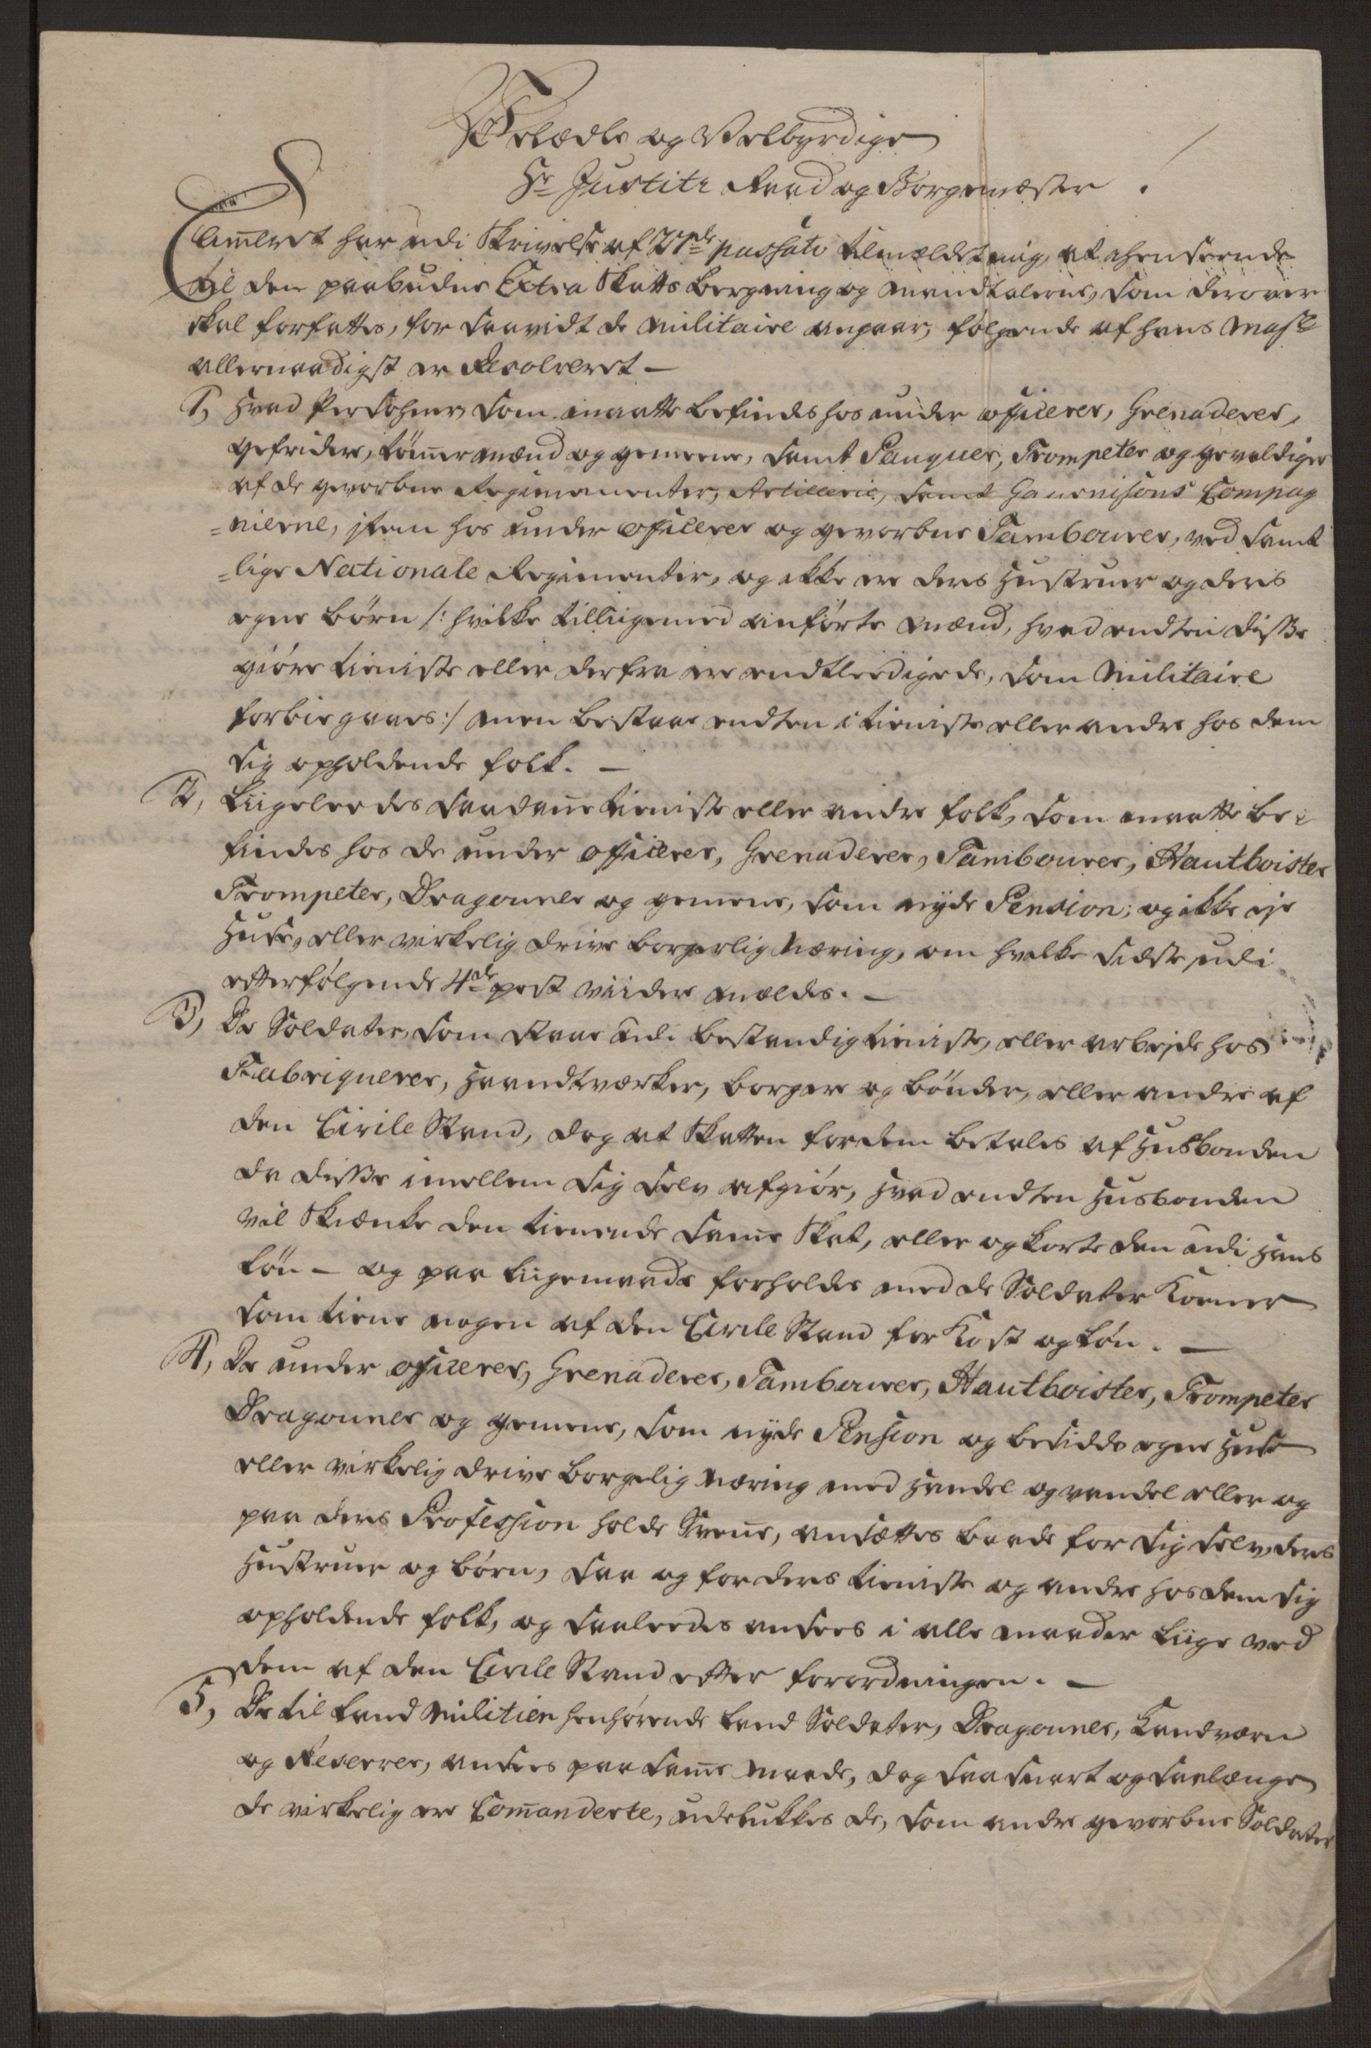 Velædle og Velbyrdige
Hr Justitz Raad og Borgemester.
Cammeret har udi Skrivelse af 27de passato tilmeldet mig, at ahenseende
til den paabudne Extra Skatts Beregning og Mandtalerne, som derover
skal forfattes, for saavidt de Militaire angaar, følgende af hans Mayst
allernaadigst er Resolveret —
1, Hvad Persohner som maatte befindes hos under officerer, Grenaderer,
gefrider, tømmermænd og gemeene, samt Pauquer, Trompeter og gevaldiger
af de gevorbne Regimenter, Artillerie, samt Gauenisons Compag
=nierne, item hos under officerer og gevorbne Tambourer, ved samt
=lige Nationale Regimenter, og ikke ere ders Hustruer og deris
egne børn /: hvilke tilliigemed anførte mænd, hvad endten disse
giøre tieniste eller derfra ere endtleedigede, som Militaire
forbiegaaes :/ men bestaar endten i tieniste eller andre hos dem
sig opholdende folk. —
2, Liigeleedes saadanne tieniste eller andre folk, som maatte be=
findes hos de under officerer, Grenaderer, Tambourer, Hautboister
Trompeter, Dragouner og gemene, som nyde Pension, og ikke eje
Huse, eller virkelig drive borgerlig Næring, om hvilke sidste, udi
efterfølgende 4de post viidere meldes. —
3, De Soldater, som staar udi bestandig tieniste, eller arbejde hos
Fabriquerer, Haandtværker, borgere og bønder, eller andre af
den Civile Stand, dog at Skatten for dem betales af Husbonden
da disse imellem sig selv afgiør, Hvad endten Husbonden
vil Skiænke den tienende samme Skat, eller og korte den udi Hans
løn — og paa liigemaade forholdes med de Soldater Koener
som tiene nogen af den Civile Stand for Kost og løn. —
4, De under officerer, Grenaderer, Tambourer, Hautboister, Trompeter
Dragouner og gemene, som nyde Pension og besidde egne Huse
eller virkelig drive borgelig Næring med Handel og vandel eller og
paa ders Profession holde Svenne, ansættes baade for sig selv, ders
Hustruer og børn, saa og for ders tieniste og andre hos dem sig
opholdende folk, og saaleedes ansees i alle maader liige ved
dem af den Civile Stand efter forordningen. —
5, De til Land Militien henhørende Land Soldater, Dragouner, Landværn
og Reserver, ansees paa samme maade, dog saa snart og saalænge
de virkelig ere Commanderte, udelukkes de, som andre gevorbne Soldater